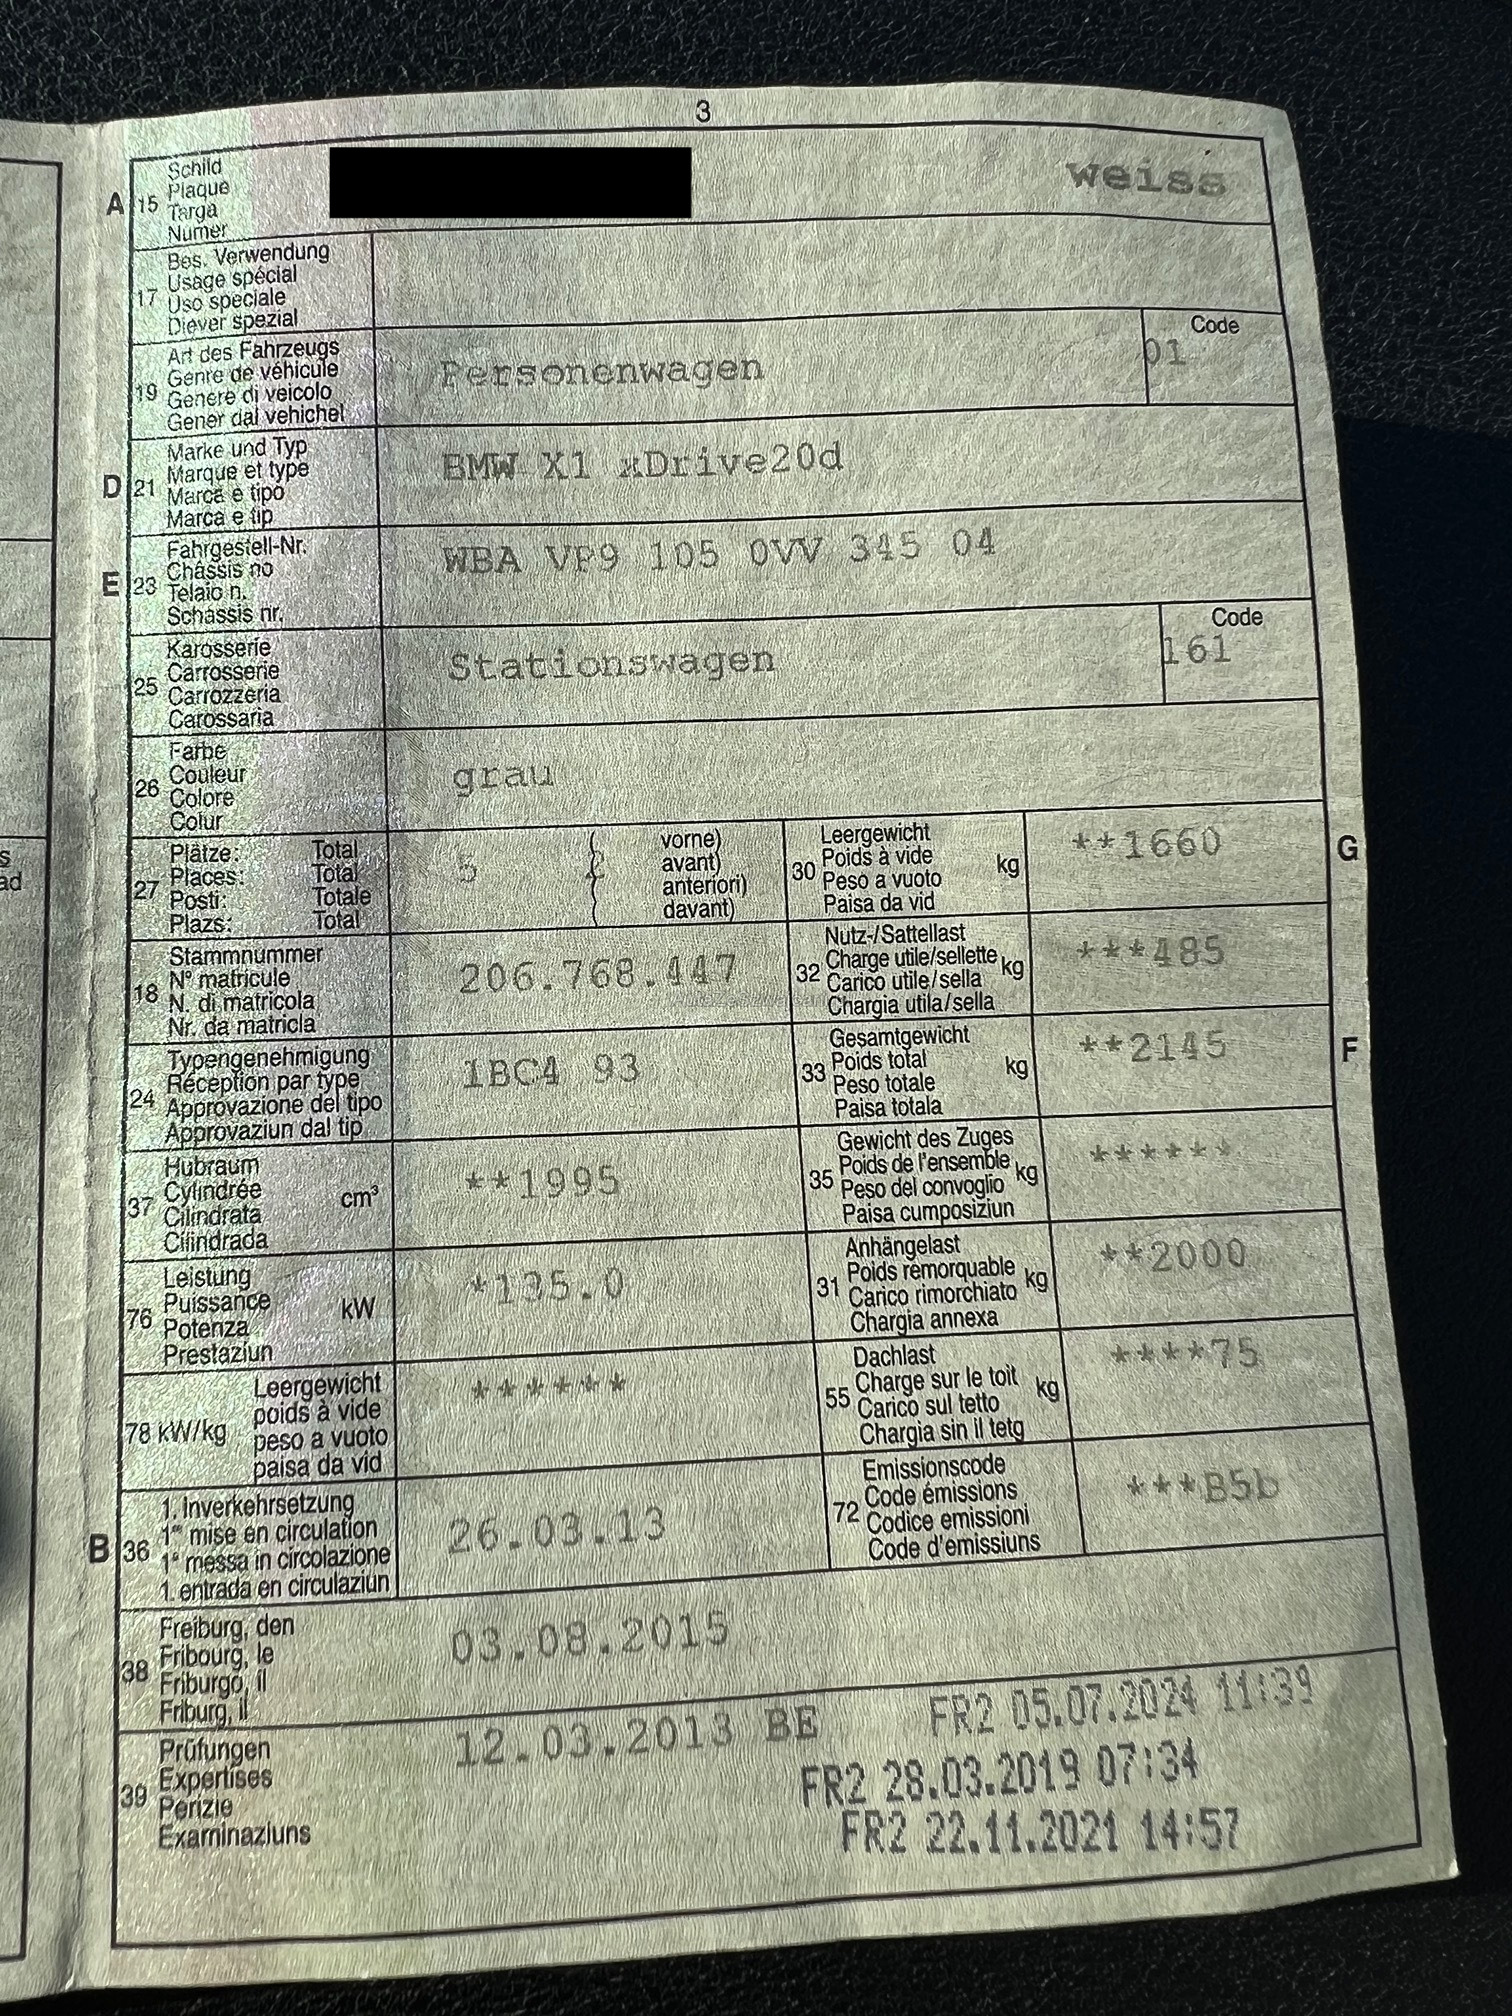 3
A 15 Schild
Plaque
Targa
Numer
weiss
17 Bes. Verwendung
Usage spécial
Uso speciale
Diever spezial
19 Art des Fahrzeugs
Genre de véhicule
Genere di veicolo
Gener dal vehichel
Personenwagen
Code
01
D 21 Marke und Typ
Marque et type
Marca e tipo
Marca e tip
BMW X1 xDrive20d
E 23 Fahrgestell-Nr.
Châssis no
Telaio n.
Schassis nr.
WBA VP9 105 0VV 345 04
25 Karosserie
Carrosserie
Carrozzeria
Carossaria
Stationswagen
Code
161
26 Farbe
Couleur
Colore
Colur
grau
27 Plätze: Total
Places: Total
Posti: Totale
Plazs: Total
5 ( 2 vorne)
avant)
anteriori)
davant)
30 Leergewicht
Poids à vide kg
Peso a vuoto
Paisa da vid
**1660
G
18 Stammnummer
N° matricule
N. di matricola
Nr. da matricla
206.768.447
32 Nutz-/Sattellast
Charge utile/sellette kg
Carico utile/sella
Chargia utila/sella
***485
24 Typengenehmigung
Réception par type
Approvazione del tipo
Approvaziun dal tip
1BC4 93
33 Gesamtgewicht
Poids total kg
Peso totale
Paisa totala
**2145
F
37 Hubraum
Cylindrée cm³
Cilindrata
Cilindrada
**1995
35 Gewicht des Zuges
Poids de l'ensemble kg
Peso del convoglio
Paisa cumposiziun
******
76 Leistung
Puissance kW
Potenza
Prestaziun
*135.0
31 Anhängelast
Poids remorquable kg
Carico rimorchiato
Chargia annexa
**2000
78 kW/kg Leergewicht
poids à vide
peso a vuoto
paisa da vid
******
55 Dachlast
Charge sur le toit kg
Carico sul tetto
Chargia sin il tetg
****75
B 36 1. Inverkehrsetzung
1re mise en circulation
1a messa in circolazione
1. entrada en circulaziun
26.03.13
72 Emissionscode
Code émissions
Codice emissioni
Code d'emissiuns
***B5b
38 Freiburg, den
Fribourg, le
Friburgo, il
Friburg, il
03.08.2015
39 Prüfungen
Expertises
Perizie
Examinaziuns
12.03.2013 BE
FR2 05.07.2024 11:39
FR2 28.03.2019 07:34
FR2 22.11.2021 14:57